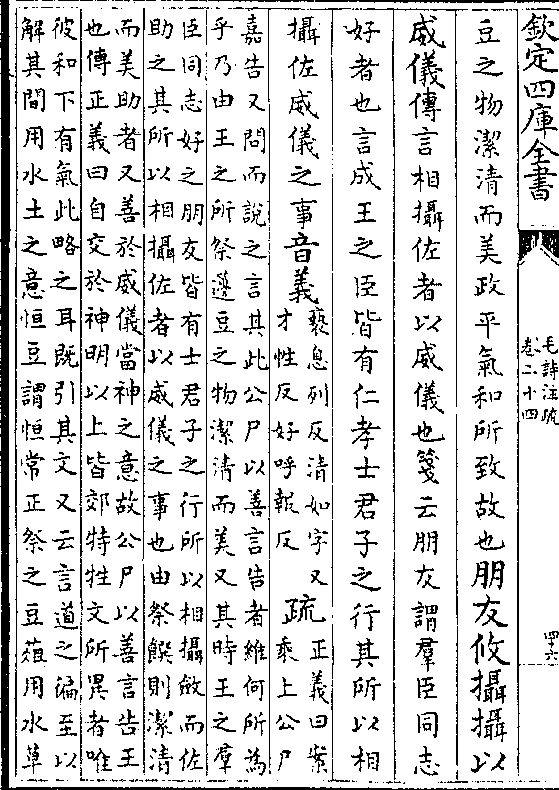 欽定四庫全書
毛詩注疏
卷二十四
四六
豆之物潔清而美政平氣和所致故也朋友攸攝攝以
威儀傳言相攝佐者以威儀也箋云朋友謂羣臣同志
好者也言成王之臣皆有仁孝士君子之行其所以相
攝佐威儀之事音義
褻息列反清如字又
才性反好呼報反
疏
正義曰案
乘上公尸
嘉告又問而說之言其此公尸以善言告者維何所為
乎乃由王之所祭籩豆之物潔清而美又其時王之羣
臣同志好之朋友皆有士君子之行所以相攝斂而佐
助之其所以相攝佐者以威儀之事也由祭饌則潔清
而美助者又善於威儀當神之意故公尸以善言告王
也傳正義曰自交於神明以上皆郊特牲文所異者唯
彼和下有氣此略之耳既引其文又云言道之徧至以
解其間用水土之意恒豆謂恒常正祭之豆菹用水草